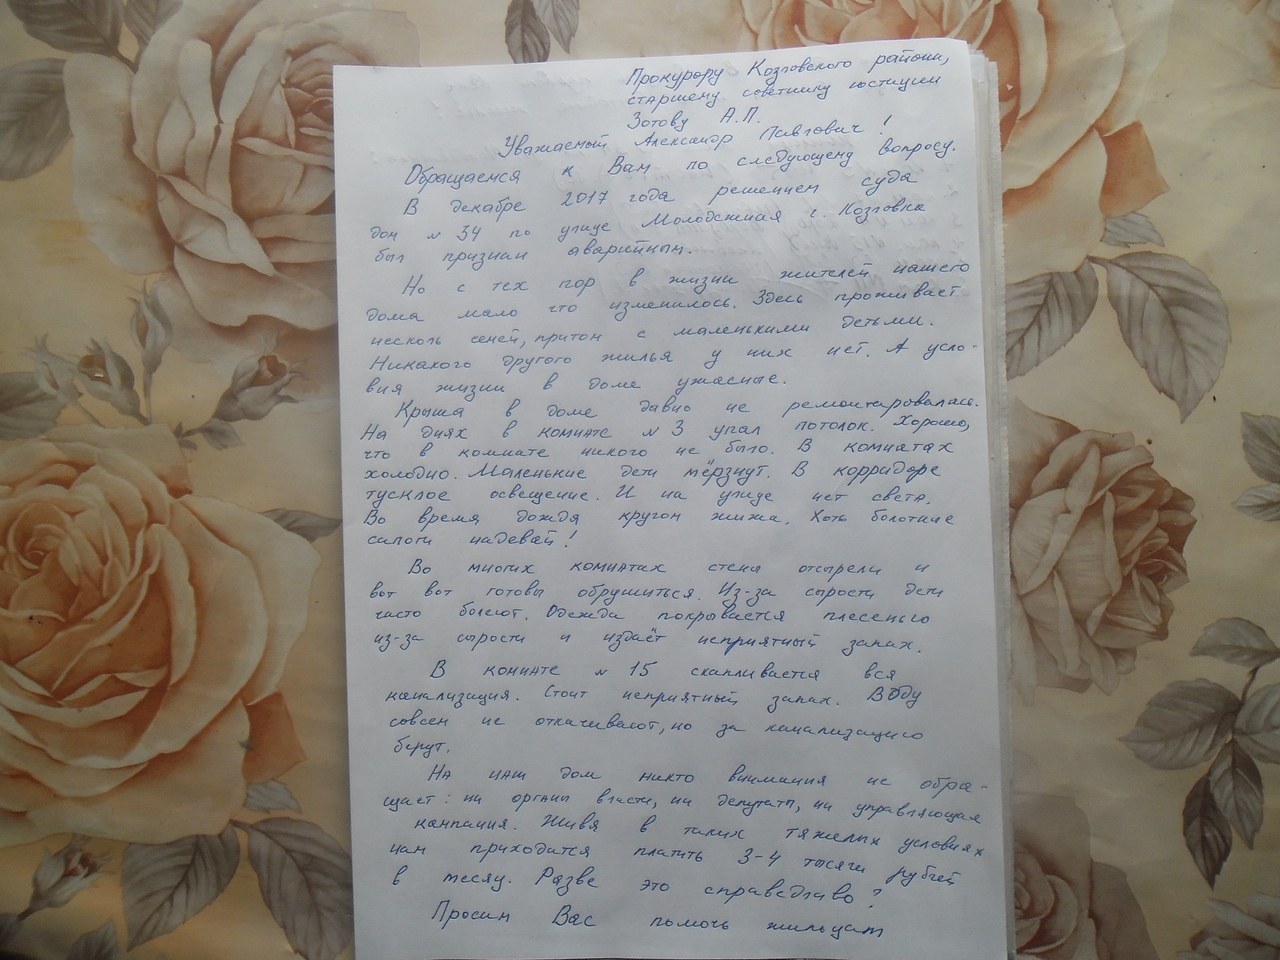 Прокурору Козловского района,
старшему советнику юстиции
Зотову А.П.
Уважаемый Александр Павлович!
Обращаемся к Вам по следующему вопросу.
В декабре 2017 года решением суда
дом № 34 по улице Молодежная г. Козловка
был признан аварийным.
Но с тех пор в жизни жителей нашего
дома мало что изменилось. Здесь проживает
несколь семей, притом с маленькими детьми.
Никакого другого жилья у них нет. А усло-
вия жизни в доме ужасные.
Крыша в доме давно не ремонтировалась.
На днях в комнате № 3 упал потолок. Хорошо,
что в комнате никого не было. В комнатах
холодно. Маленькие дети мёрзнут. В корридоре
тусклое освещение. И на улице нет света.
Во время дождя кругом жижа. Хоть болотные
сапоги надевай!
Во многих комнатах стены отсырели и
вот вот готовы обрушиться. Из-за сырости дети
часто болеют. Одежда покрывается плесенью
из-за сырости и издаёт неприятный запах.
В комнате № 15 скапливается вся
канализация. Стоит неприятный запах. Воду
совсем не откачивают, но за канализацию
берут.
На наш дом никто внимания не обра-
щает: ни органы власти, ни депутаты, ни управляющая
кампания. Живя в таких тяжелых условиях
нам приходится платить 3-4 тысячи рублей
в месяц. Разве это справедливо?
Просим Вас помочь жильцам